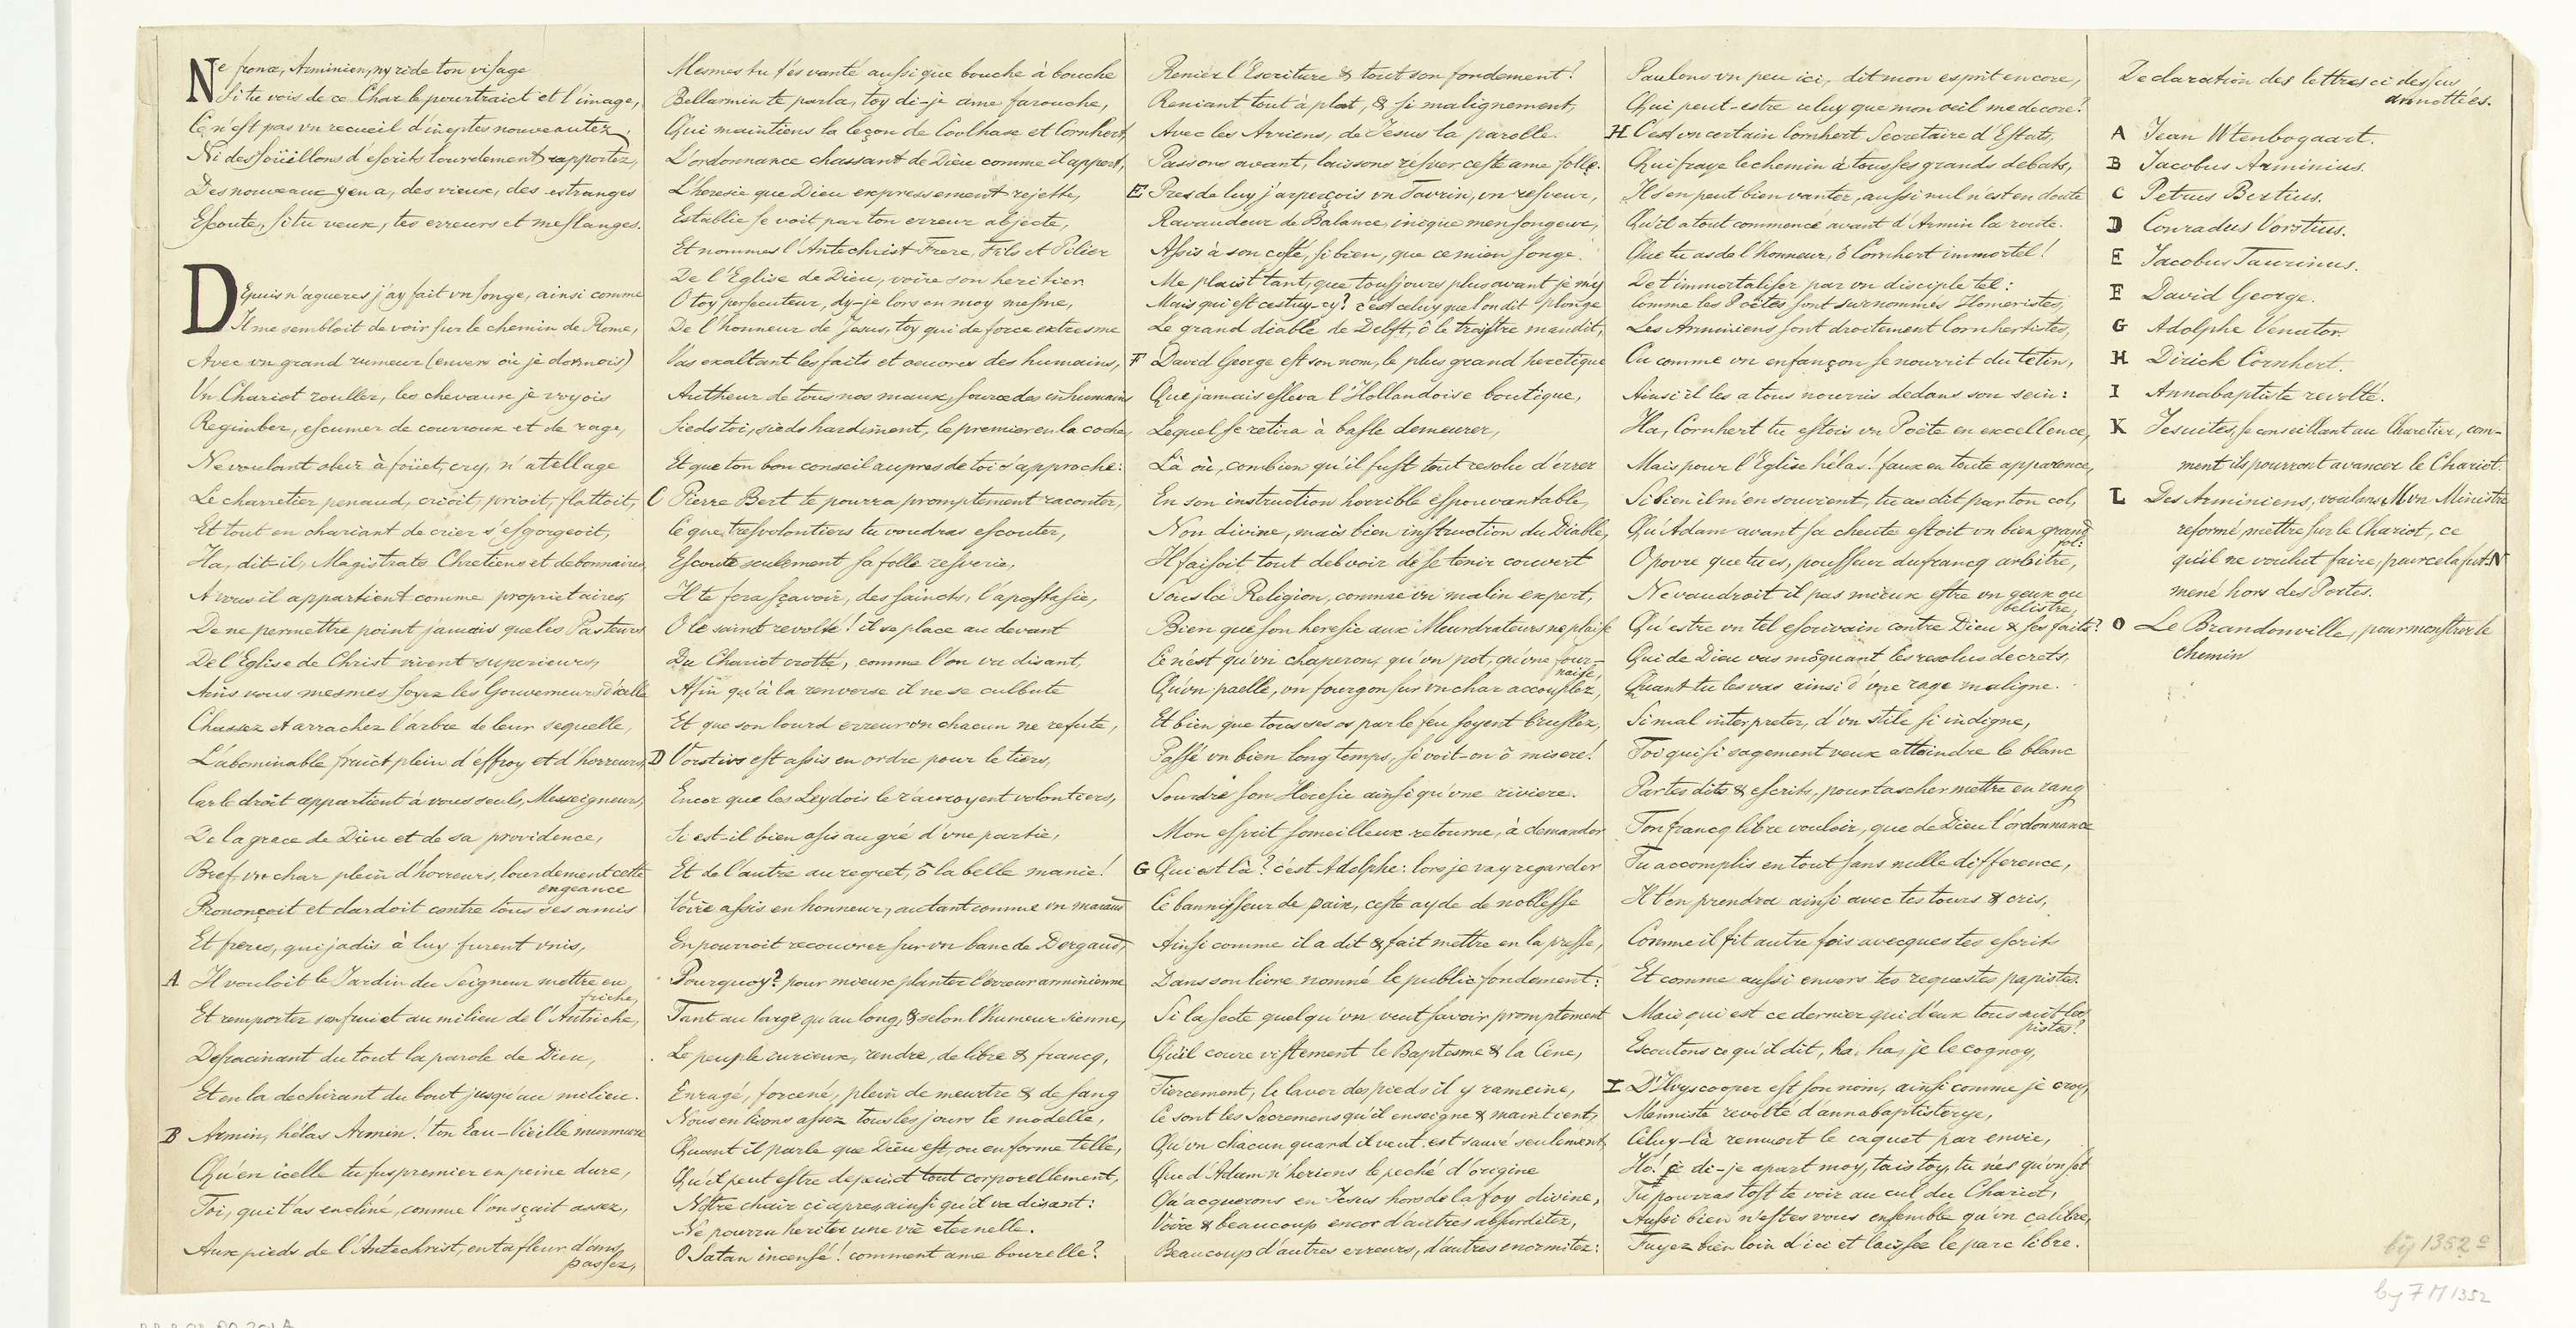 Ne fronce, Arminien, ny ride ton visage
Si tu vois de ce Char le pourtraict et l'image,
Ce n'est pas un recueil d'ineptes nouveautez,
Ni des foüillons d'escrits lourdement rapportez,
Des nouveaux y en a, des vieux, des estranges
Escoute, si tu veux, tes erreurs et meslanges.
DEpuis n'agueres j'ay fait vn songe, ainsi comme
Il me sembloit de voir sur le chemin de Rome,
Avec vn grand rumeur (envers où je dormois)
Vn Chariot rouller, les chevaux je voyois
Regimber, escumer de courroux et de rage,
Ne voulant obeir à foüet, cry, n'atellage
Le charretier penaud, crioit, prioit, flattoit,
Et tout en chariant de crier s'esgorgeoit,
Ha, dit-il, Magistrats Chretiens et debonnaires
A vous il appartient comme proprietaires,
De ne permettre point jamais que les Pasteurs
De l'Eglise de Christ vivent superieurs,
Ains vous mesmes soyez les Gouverneurs d'icelle
Chassez et arrachez l'arbre de leur sequelle,
L'abominable fruict plein d'effroy et d'horreurs,
Car le droit appartient à vous seuls, Messeigneurs,
De la grace de Dieu et de sa providence,
Bref vn char plein d'horreurs, lourdement cette
engeance
Prononçoit et dardoit contre tous ses amis
Et freres, qui jadis à luy furent vnis,
A Il vouloit le Jardin du Seigneur mettre en
friche,
Et remporter son fruict au milieu de l'Autriche,
Desracinant du tout la parole de Dieu,
Et en la dechirant du bout jusqu'au milieu.
B Armin, hélas Armin! ton Eau-Vieille murmure
Qu'en icelle tu fus premier en peine dure,
Toi, qui t'as encliné, comme l'on sçait assez,
Aux pieds de l'Antechrist, en ta fleur d'ans
passez,
Mesmes tu t'és vanté aussi que bouche à bouche
Bellarmin te parla, toy di-je ame farouche,
Qui maintiens la leçon de Coolhase et Cornhert,
L'ordonnance chassant de Dieu comme il appert,
L'heresie que Dieu expressement rejette,
Establie se voit par ton erreur abjecte,
Et nommes l'Antechrist Frere, Fils et Pilier
De l'Eglise de Dieu, voire son heritier
O toy persecuteur, dy-je lors en moy mesme,
De l'honneur de Jesus, toy qui de force extresme
Vas exaltant les faits et oeuvres des humains,
Autheur de tous nos maux, source des inhumains
Sieds toi, sieds hardiment, le premier en la coche,
Et que ton bon conseil aupres de toi s'approche:
C Pierre Bert te pourra promptement raconter,
Ce que tresvolontiers tu voudras escouter,
Escoute seulement sa folle resverie,
Il te fera sçavoir, des saincts, l'apostasie,
O le saint revolté! il se place au devant
Du Chariot crotté, comme l'on va disant,
Afin qu'à la renverse il ne se culbute
Et que son lourd erreur vn chacun ne refute,
D Vorstius est assis en ordre pour le tiers,
Encor que les Leydois le r'auroyent volontiers,
Si est-il bien assis au gré d'vne partie,
Et de l'autre au regret, ô la belle manie!
Voire assis en honneur, autant comme vn maraus
En pourroit recouvrer sur vn banc de Dergaud,
Pourquoy? pour mieux planter l'erreur arminienne
Tant au large qu'au long, & selon l'humeur sienne,
Le peuple curieux, rendre, de libre & francq,
Enragé, forcené, plein de meurtre & de sang
Nous en lisons assez tous les jours le modelle,
Quant il parle que Dieu est, ou en forme telle,
Qu'il peut estre depeinct tout corporellement,
Nostre chair ci apres ainsi qu'il va disant:
Ne pourra heriter une vie eternelle.
O Satan incensé! comment ame bourelle?
Renier l'Escriture & tout son fondement?
Reniant tout à plat, & si malignement,
Avec les Arriens, de Jesus la parolle.
Passons avant, laissons résver ceste ame folle.
E Pres de luy j'arperçois vn Taurin, vn resveur,
Ravaudeur de Balance, inique mensongeur,
Assis à son costé, si bien, que ce mien songe
Me plaist tant, que tousjours plus avant je m'y
Mais qui est cestuy-cy? c'est celuy que l'on dit plonge
Le grand diable de Delft, ô le traistre maudit,
F David George est son nom, le plus grand heretique
Que jamais esleva l'Hollandoise boutique,
Lequel se retira à basle demeurer,
Là où, combien qu'il fust tout resolu d'errer
En son instruction horrible espouvantable,
Non divine, mais bien instruction du Diable,
Il faisoit tout debvoir de se tenir couvert
Sous la Religion, comme vn malin expert,
Bien que son heresie aux Meurdrateurs ne plaise
Ce n'est qu'vn chaperon, qu'vn pot, qu'vne four-
naise,
Qu'vn paelle, vn fourgon sur vn char accouplez,
Et bien que tous ses os par le feu soyent bruslez,
Passé vn bien long temps, si voit-on ô misere!
Sourdre son Hæresie ainsi qu'vne riviere.
Mon esprit someilleux retourne, à demander
G Qui est là? c'est Adolphe: lors je vay regarder
Ce bannisseur de paix, ceste ayde de noblesse
Ainsi comme il a dit & fait mettre en la presse,
Dans son livre nommé le public fondement:
Si la secte quelqu'vn veut savoir promptement
Qu'il coure vistement le Baptesme & la Cene,
Tiercement, le laver des pieds il y rameine,
Ce sont les Sacremens qu'il enseigne & maintient,
Qu'vn chacun quand il veut est sauvé seulement,
Que d'Adam n'herions le peché d'origine
Qu'acquerons en Jesus hors de la foy divine,
Voire & beaucoup encor d'autres absurditez,
Beaucoup d'autres erreurs, d'autres enormitez:
Parlons vn peu ici, dit mon esprit encore,
Qui peut-estre celuy que mon oeil me decore?
H C'est vn certain Cornhert Secretaire d'Estats,
Qui fraye le chemin à tous ses grands debats,
Il s'en peut bien vanter, aussi nul n'est en doute
Qu'il a tout commencé avant d'Armin la route.
Que tu as de l'honneur, ô Cornhert immortel!
De t'immortaliser par vn disciple tel:
Comme les Poëtes sont surnommés Homeristes,
Les Arminiens sont droitement Cornhertistes,
Ou comme vn enfançon se nourrit du tetin,
Ainsi il les a tous nourris dedans son sein:
Ha, Cornhert tu estois vn Poëte en excellence,
Mais pour l'Eglise hélas! faux en toute apparence,
Si bien il m'en souvient, tu as dit par ton col,
Qu'Adam avant sa cheute estoit vn bien grand
fol:
O povre que tu es, pousseur du francq arbitre,
Ne vaudroit il pas mieux estre vn geux ou
belistre,
Qu'estre vn tel escrivain contre Dieu & ses faits?
Qui de Dieu vas môquant les resolus decrets,
Quant tu les vas ainsi d'vne rage maligne.
Si mal interpreter, d'vn stile si indigne,
Toi qui si sagement veux attaindre le blanc
Par tes dits & escrits, pour tascher mettre en rang
Ton francq libre vouloir, que de Dieu l'ordonnance
Tu accomplis en tout sans nulle difference,
Il t'en prendra ainsi avec tes tours & cris,
Comme il fit autre fois avecques tes escrits
Et comme aussi envers tes requestes papistes.
Mais qui est ce dernier qui d'eux tous suit les
pistes?
Escoutons ce qu'il dit, ha, ha, je le cognoy,
I D'Huyscooper est son nom, ainsi comme je croy,
Menniste revolté d'annabaptisterye,
Celuy-là remuoit le caquet par envie,
Ho! ce di-je apart moy, tais toy, tu n'es qu'vn sot
Tu pourras tost te voir au cul du Chariot,
Aussi bien n'estes vous ensemble qu'vn calibre,
Fuyez bien loin d'ici et laissez le parc libre.
Declaration des lettres ci dessus
annottées.
A Jean Wtenbogaart.
B Jacobus Arminius.
C Petrus Bertius.
D Conradus Vorstius.
E Jacobus Taurinus.
F David George.
G Adolphe Venator.
H Dirick Cornhert.
I Annabaptiste revolté.
K Jesuites, se conseillant au Charetier, com-
ment ils pourront avancer le Chariot.
L Des Arminiens, voulans M vn Ministre
reformé mettre sur le Chariot, ce
qu'il ne voulut faire, pource la fut N
mené hors des Portes.
O Le Brandonville, pour monstrer le
chemin
bij 1352 c
by F M 1352